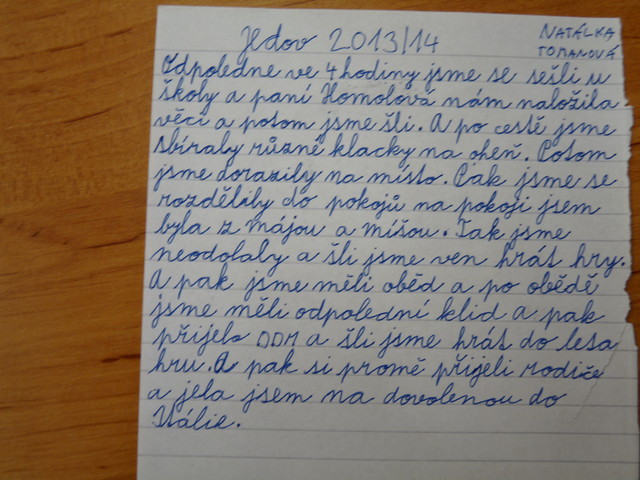 Jedov 2013/14
NATÁLKA
TOMANOVÁ
Odpoledne ve 4 hodiny jsme se sešli u
školy a paní Homolová nám naložila
věci a potom jsme šli. A po cestě jsme
sbíraby různé klacky na oheň. Potom
jsme dorazily na místo. Pak jsme se
rozdělily do pokojů na pokoji jsem
byla z májou a míšou. Tak jsme
neodolaby a šli jsme ven hrát hry.
A pak jsme měli oběd a po obědě
jsme měli odpolední klid a pak
přijelo DDM a šli jsme hrát do lesa
hru. A pak si promě přijeli rodiče
a jela jsem na dovolenou do
Itálie.